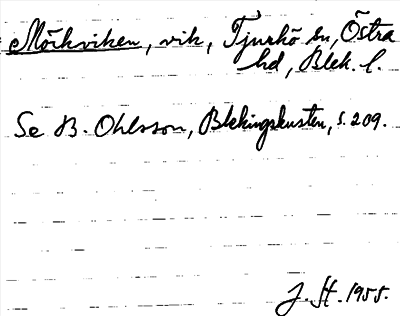 Mörkviken, vik, Tjurkö sn, Östra
hd, Blek. l.
Se B. Ohlsson, Blekingskusten, s. 209.
J. St. 1955.